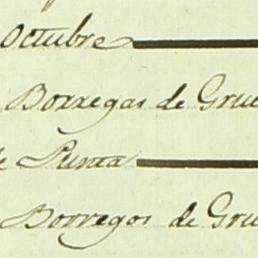 Octubre
Borregas de Grue
de Punta
Borregos de Grue